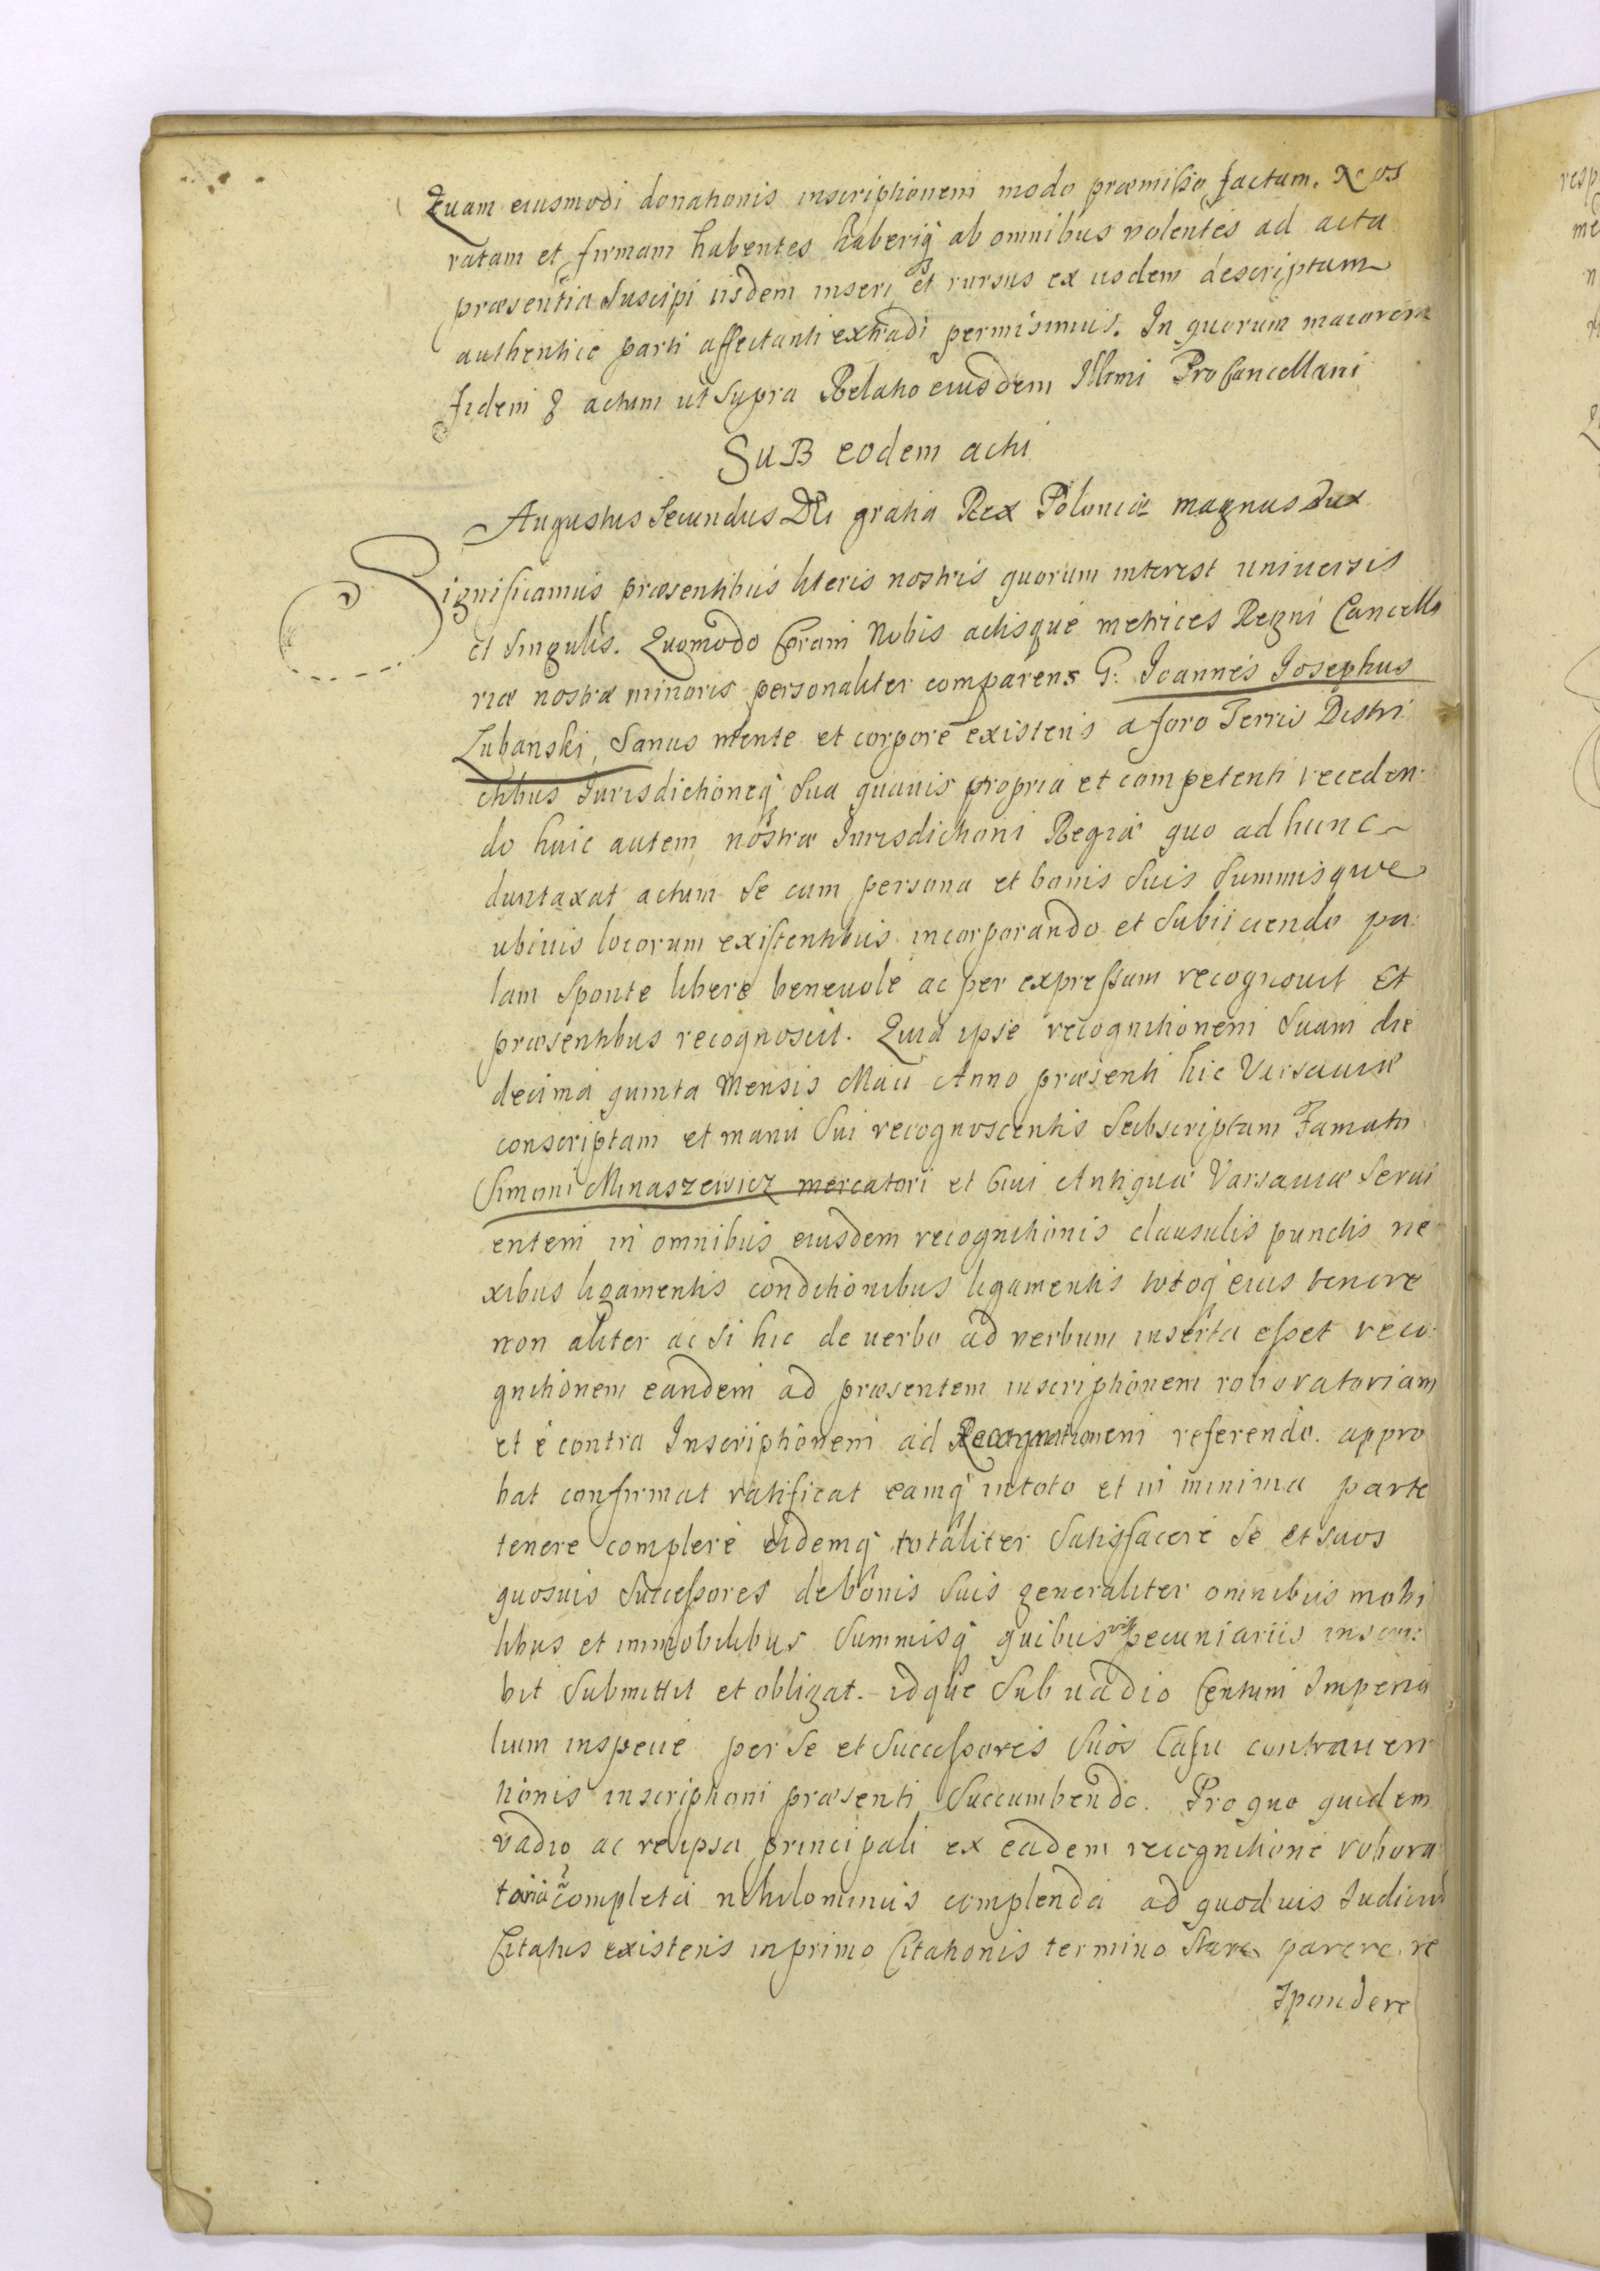 Quam eiusmodi donationis inscriptionem modo præmisso factam. Nos
ratam et firmam habentes haberiq ab omnibus volentes ad acta
præsentia suscipi iisdem inseri et rursus ex iisdem descriptam
authentice parti affectanti extradi permisimus. In quorum maiorem
fidem & actum ut supra Relatio eiusdem Illmi ProCancellarii
SuB eodem acti
Augustus Secundus Dei gratia Rex Poloniæ magnus Dux
Significamus præsentibus literis nostris quorum interest universis
et singulis. Quomodo Coram Nobis actisque metrices Regni Cancella
riæ nostræ minoris personaliter comparens G: Ioannes Iosephus
Lubanski, sanus mente et corpore existens a foro Terris Distri
ctibus Iurisdictioneq sua quavis propria et competenti receden
do huic autem nostræ Iurisdictioni Regiæ quo ad hunc
duntaxat actum se cum persona et bonis suis summisque
ubivis locorum existentibus incorporando et subiiciendo pa
lam sponte libere benevole ac per expressum recognouit Et
præsentibus recognoscit. Quia ipse recognitionem suam die
decima quinta mensis Maii Anno præsenti hic Varsaviæ
conscriptam et manu sui recognoscentis subscriptam Famato
Simoni Minaszewicz mercatori et Civi Antiquæ Varsaviæ servi
entem in omnibus eiusdem recognitionis clausulis punctis ne
xibus ligamentis conditionibus ligamentis totoq eius tenore
non aliter ac si hic de uerbo ad verbum inserta esset reco
gnitionem eandem ad præsentem inscriptionem roboratoriam
et è contra Inscriptionem ad Recognitionem referendo. appro
bat confirmat ratificat eamq in toto et in minima parte
tenere complere eidemq totaliter satisfacere se et suos
quosuis successores de bonis suis generaliter omnibus mobi
libus et immobilibus summisq quibusvis pecuniariis inscri:
bit submittit et obligat. idque sub vadio Centum Imperia
lium in specie per se et successores suos Casu contraven
tionis inscriptioni præsenti succumbendo. Pro quo quidem
vadio ac re ipsa principali ex eadem recognitione robora
toria completa nihilominus complenda ad quoduis Iudiciu
Citatus existens in primo Citationis termino stare parere re
spondere